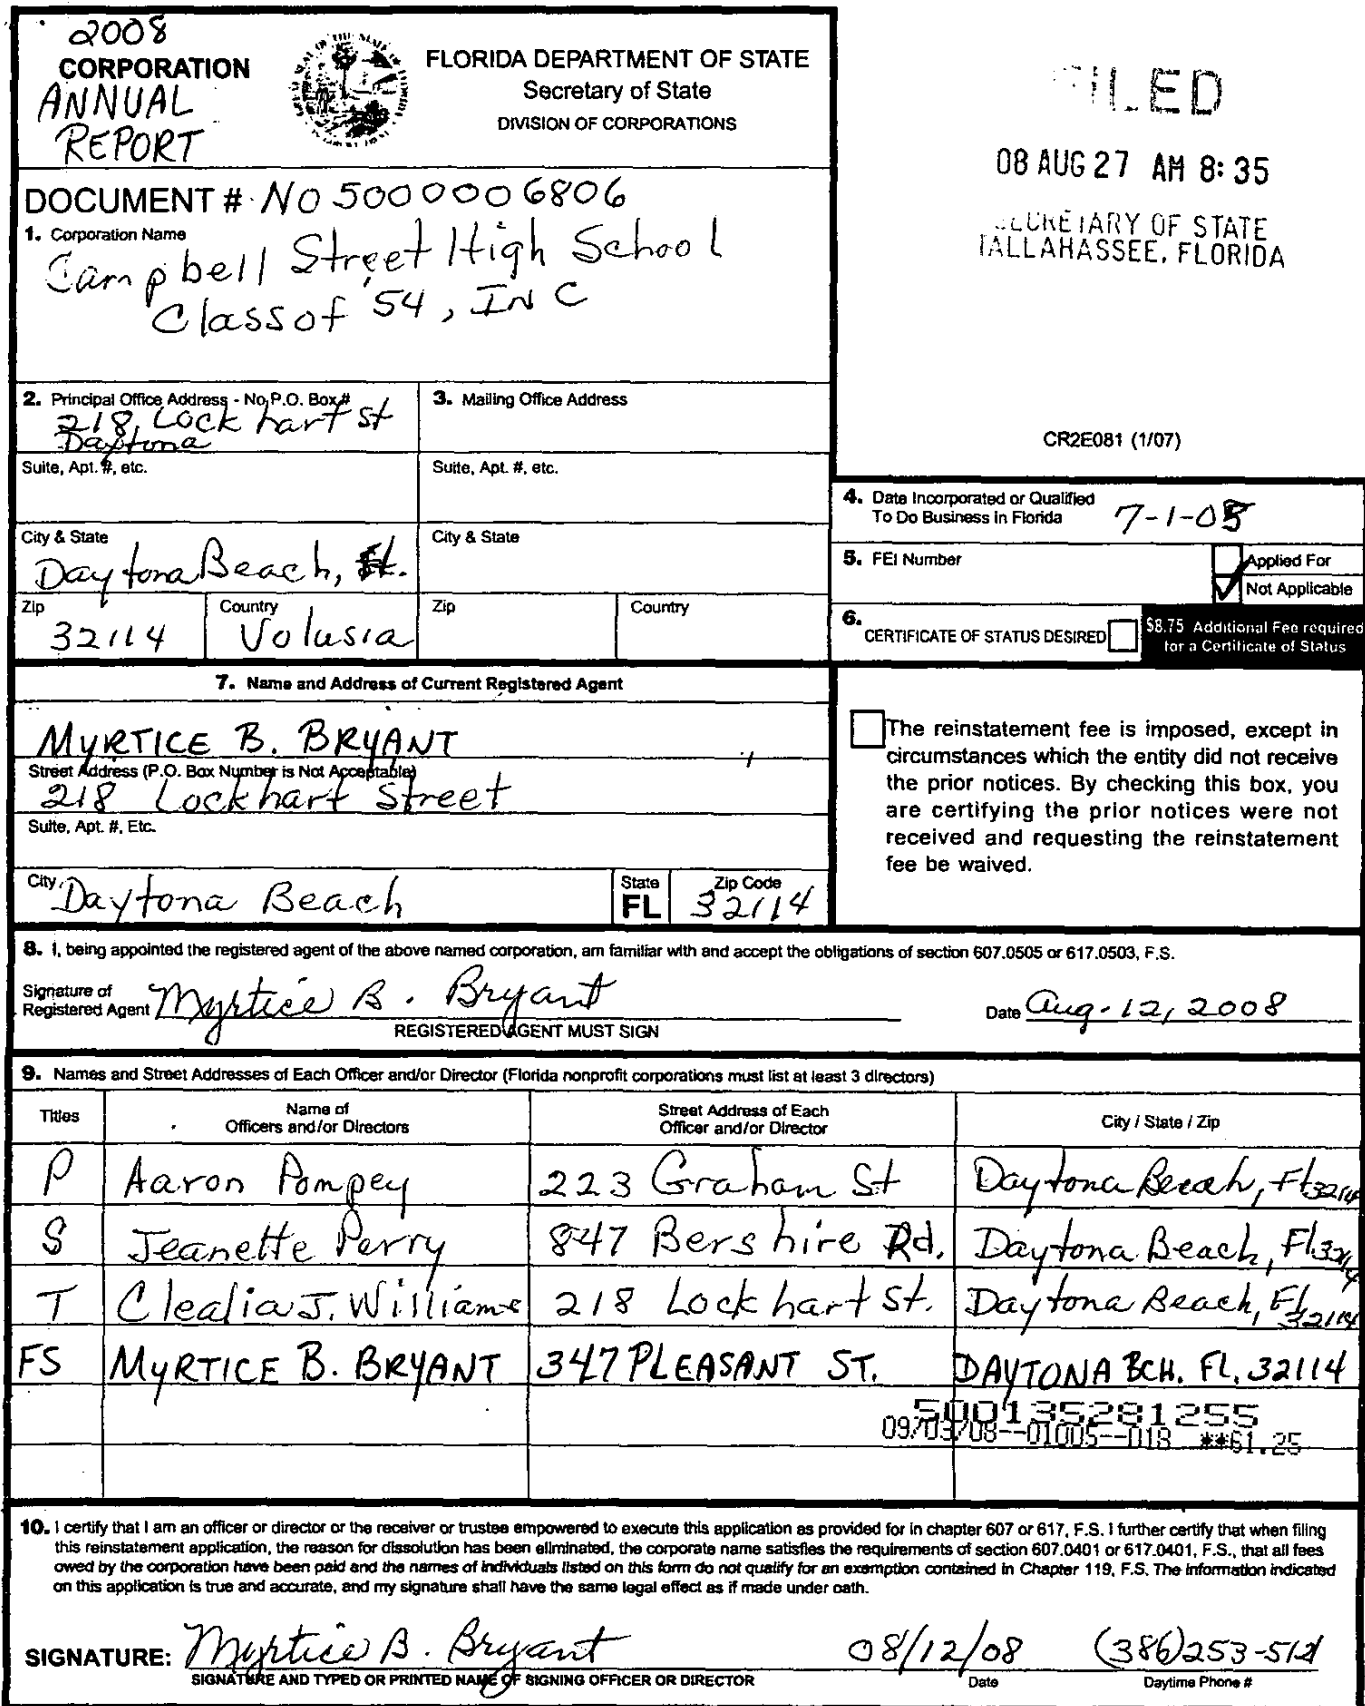 2008
CORPORATION
ANNUAL
REPORT
FLORIDA DEPARTMENT OF STATE
Secretary of State
DIVISION OF CORPORATIONS
FILED
08 AUG 27 AM 8:35
SECRETARY OF STATE
TALLAHASSEE, FLORIDA
DOCUMENT # NO5000006806
1. Corporation Name
Campbell Street High School
Class of '54, INC
2. Principal Office Address - No P.O. Box #
218 Lockhart St
Daytona
3. Mailing Office Address
CR2E081 (1/07)
Suite, Apt. #, etc.
Suite, Apt. #, etc.
4. Date Incorporated or Qualified
To Do Business in Florida
7-1-05
City & State
Daytona Beach, Fl.
City & State
5. FEI Number
Applied For
Not Applicable
Zip
32114
Country
Volusia
Zip
Country
6. CERTIFICATE OF STATUS DESIRED
$8.75 Additional Fee required
for a Certificate of Status
7. Name and Address of Current Registered Agent
MYRTICE B. BRYANT
Street Address (P.O. Box Number is Not Acceptable)
218 Lockhart Street
Suite, Apt. #, Etc.
City
Daytona Beach
State
FL
Zip Code
32114
The reinstatement fee is imposed, except in
circumstances which the entity did not receive
the prior notices. By checking this box, you
are certifying the prior notices were not
received and requesting the reinstatement
fee be waived.
8. I, being appointed the registered agent of the above named corporation, am familiar with and accept the obligations of section 607.0505 or 617.0503, F.S.
Signature of
Registered Agent Myrtice B. Bryant
REGISTERED AGENT MUST SIGN
Date Aug. 12, 2008
9. Names and Street Addresses of Each Officer and/or Director (Florida nonprofit corporations must list at least 3 directors)
Titles
Name of
Officers and/or Directors
Street Address of Each
Officer and/or Director
City / State / Zip
P Aaron Pompey 223 Graham St Daytona Beach, Fl 32114
S Jeanette Perry 847 Bershire Rd. Daytona Beach, Fl 32114
T Clealia J. Williams 218 Lockhart St. Daytona Beach, Fl 32114
FS MYRTICE B. BRYANT 347 PLEASANT ST. DAYTONA BCH. FL. 32114
500135281255
09/03/08--01005--018 **61.25
10. I certify that I am an officer or director or the receiver or trustee empowered to execute this application as provided for in chapter 607 or 617, F.S. I further certify that when filing
this reinstatement application, the reason for dissolution has been eliminated, the corporate name satisfies the requirements of section 607.0401 or 617.0401, F.S., that all fees
owed by the corporation have been paid and the names of individuals listed on this form do not qualify for an exemption contained in Chapter 119, F.S. The information indicated
on this application is true and accurate, and my signature shall have the same legal effect as if made under oath.
SIGNATURE: Myrtice B. Bryant 08/12/08
SIGNATURE AND TYPED OR PRINTED NAME OF SIGNING OFFICER OR DIRECTOR
Date
Daytime Phone #